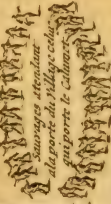 sauvages attendant
a la porte du Vilage celuy
qui porte le calumet